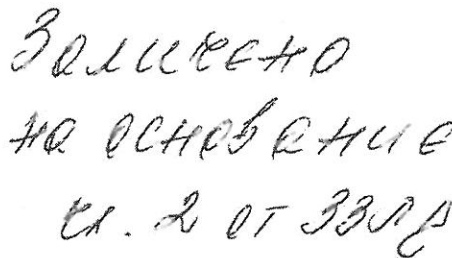 Заличено
на основание
чл. 2 от ЗЗЛД